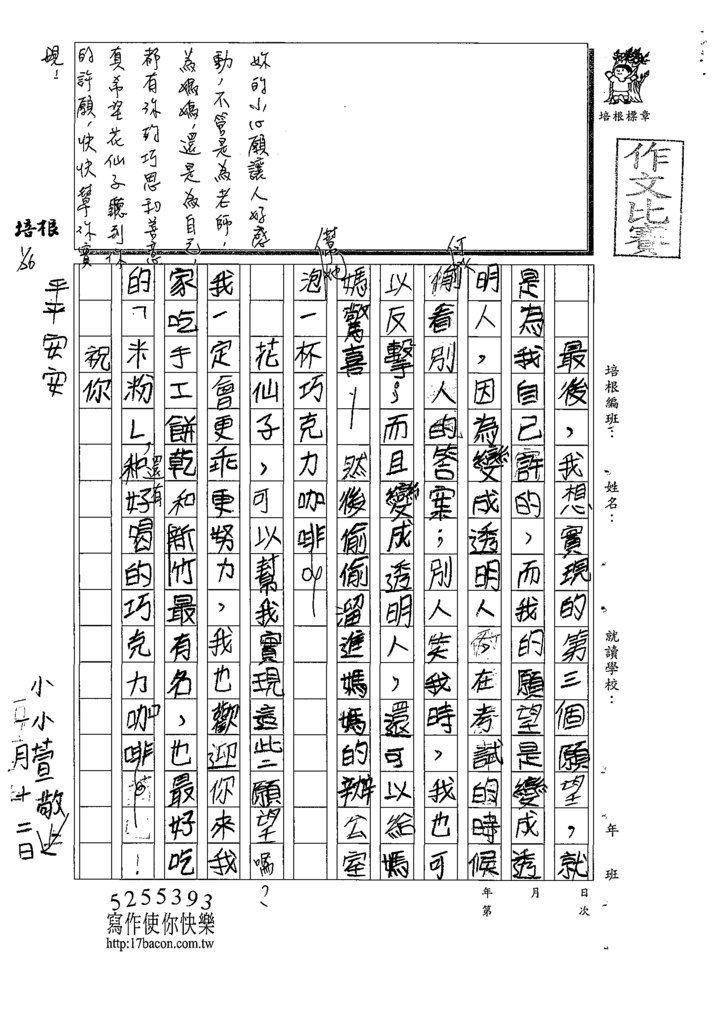 培根標章
作文比賽
妳的小心願讓人好感
動，不管是為老師，
為媽媽，還是為自己，
都有妳的巧思和善意
真希望花仙子聽到妳
的許願，快快幫妳實
現！
培根
培根編班：
姓名：
就讀學校：
年
班
日次
月
年第
最後，我想實現的第三個願望，就
是為我自己許的，而我的願望是變成透
明人，因為變成透明人在考試的時候
偷看別人的答案；別人笑我時，我也可
以反擊；而且變成透明人，還可以給媽
媽驚喜—然後偷偷溜進媽媽的辦公室
幫她
泡一杯巧克力咖啡。
花仙子，可以幫我實現這些願望嗎？
我一定會更乖更努力，我也歡迎你來我
家吃手工餅乾和新竹最有名，也最好吃
的「米粉」，還有好喝的巧克力咖啡！
祝你
平平安安
小小萱敬上
月十二日
5255393
寫作使你快樂
http:17bacon.com.tw